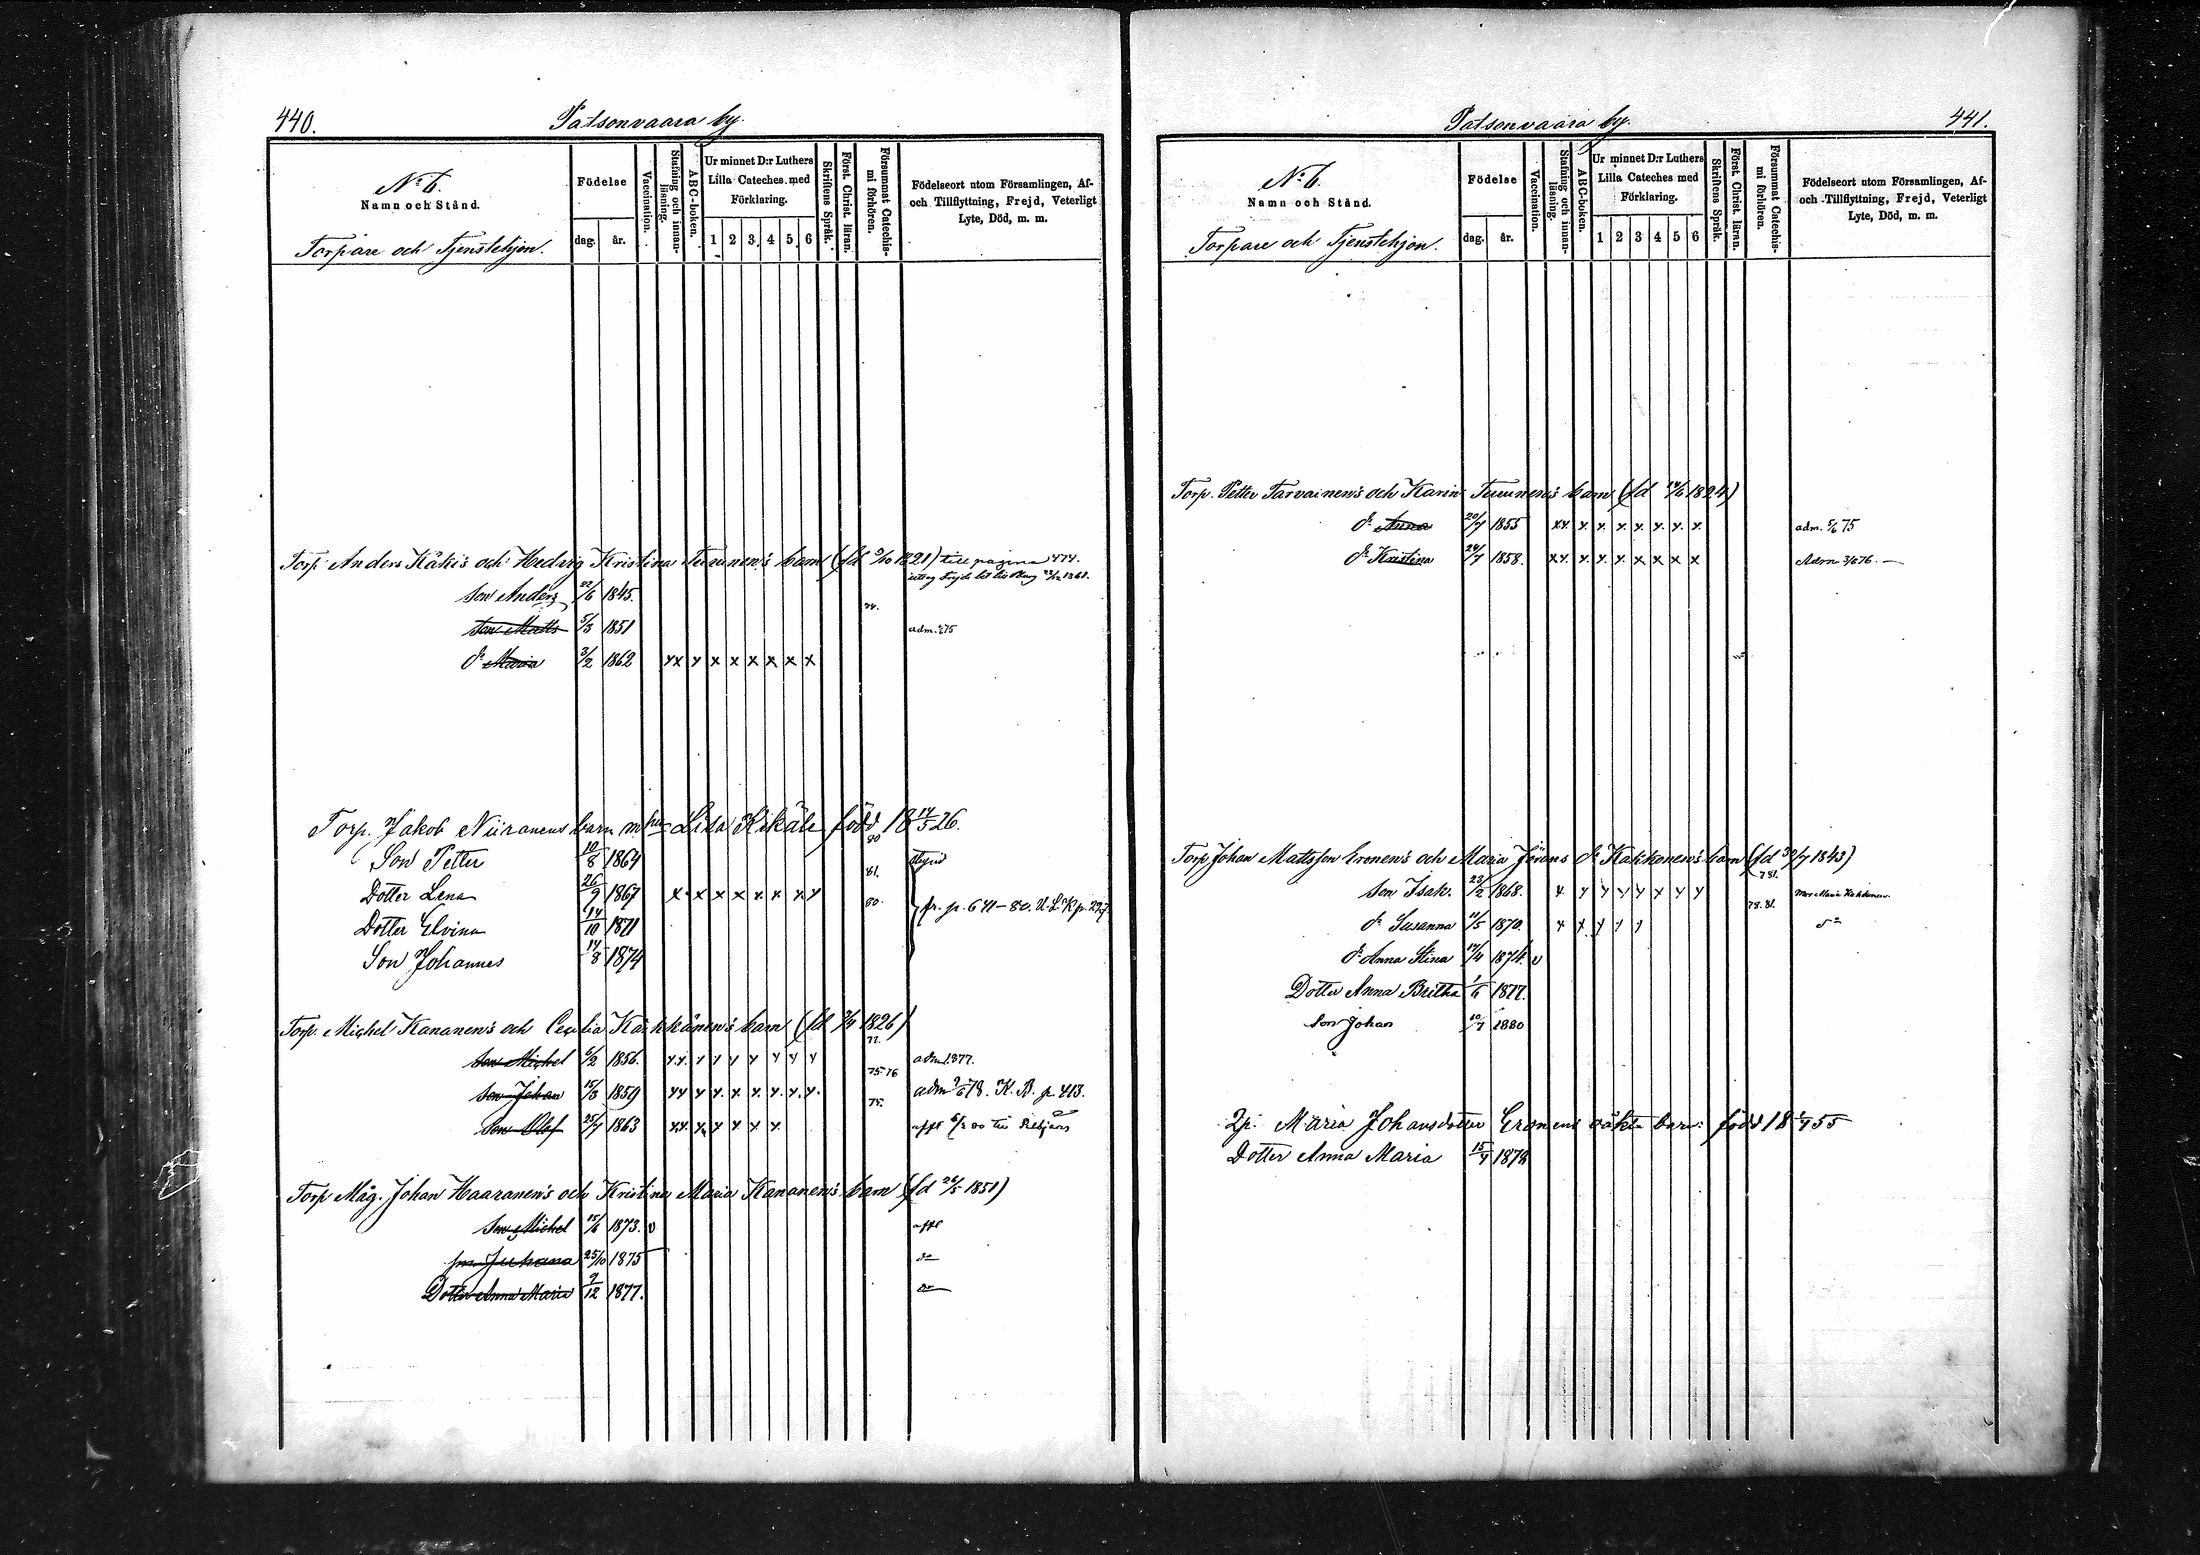 440.
Patsonvaara by.
No. 6.
Namn och Stånd.
Torpare och Tjenstehjon.
Födelse
dag. år.
Vaccination.
Stafning och innanläsning.
ABC-boken.
Ur minnet D:r Luthers Lilla Cateches med Förklaring.
1 2 3 4 5 6
Skriftens Språk.
Först. Christ. läran.
Försummat Catechismi förhören.
Födelseort utom Församlingen, Af- och Tillflyttning, Frejd, Veterligt Lyte, Död, m. m.
Torp. Anders Käki's och Hedvig Kristina Turunen's barn (fd 5/10 1821) till pagina 474.
Son Anders 22/6 1845.
74.
Son Matts 5/3 1851 adm. 75
dr Maria 3/2 1862 xx x x x x x x x
Torp. Jakob Niiranens barn m hu Lisa Kikäle född 18 14/5 26.
80
Son Petter 10/8 1864
81.
Dotter Lena 26/9 1867 x x x x x x x x
80. fr. p. 641-80. U.L.K p. 227
Dotter Elvina 14/10 1871
Son Johannes 14/8 1874
Torp. Michel Kananen's och Cecilia Kakkonen's barn (fd 1826)
77.
Son Michel 6/2 1856. x x x x x x x x x adm 1877.
75 76
Son Johan 15/3 1859 x x x x x x x x x adm 9/6 78. K. B. p. 413.
75.
Son Olof 25/7 1863 xx x x x x x
Torp Måg. Johan Haaranen's och Kristina Maria Kananen's barn (fd 26/5 1851)
Son Michel 15/6 1873. v
son Juhana 25/10 1875 do
Dotter Anna Maria 9/12 1877. do
Patsonvaara by.
441.
No. 6.
Namn och Stånd.
Torpare och Tjenstehjon.
Födelse
dag. år.
Vaccination.
Stafning och innanläsning.
ABC-boken.
Ur minnet D:r Luthers Lilla Cateches med Förklaring.
1 2 3 4 5 6
Skriftens Språk.
Först. Christ. läran.
Försummat Catechismi förhören.
Födelseort utom Församlingen, Af- och Tillflyttning, Frejd, Veterligt Lyte, Död, m. m.
Torp. Petter Tarvainen's och Karin Turunen's barn (fd 24/6 1824)
dr Anna 20/7 1855 xx x x x x x x x adm. 6/6 75
dr Kristina 24/7 1858. xx x x x x x x x Adm 3/6 76.
Torp Johan Mattsson Eronen's och Maria Jörans dr Kakkonen's barn (fd 30/7 1843)
781.
Son Isak. 23/2 1868. x x x x x x x x Mor Maria Kakkonen.
78. 81.
dr Susanna 11/5 1870. x x x x x do
dr Anna Stina 17/4 1874. v
Dotter Anna Britha 1/6 1877.
Son Johan 10/7 1880
Maria Johansdotter Eronens oäkta barn: född 18 55
Dotter Anna Maria 15/7 1878